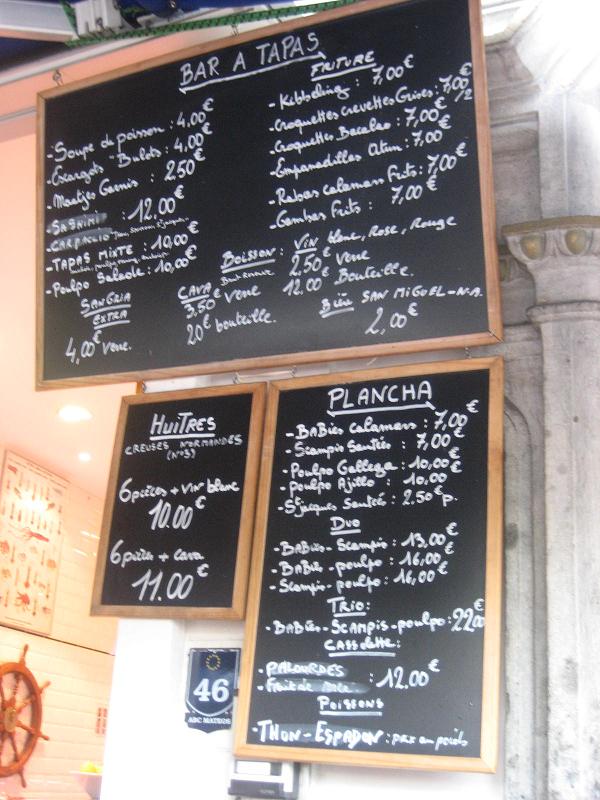 BAR A TAPAS
- Soupe de poisson : 4,00€
- Escargots - Bulots : 4,00€
- Maatjes Garnis : 2.50€
- SASHIMI
- CARPACCIO : 12.00€
- TAPAS MIXTE : 10,00€
- Poulpo Salade : 10,00€
SANGRIA
EXTRA
4,00€ verre.
FRITURE
- Kibbeling : 7,00€
- Croquettes crevettes Grises : 7,00€ /2
- Croquettes Bacalao : 7,00€
- Empanadillas Atun : 7,00€
- Rabas calamars Frits : 7,00€
- Gambas Frits : 7,00€
BOISSON :
CAVA
3,50€ verre
20€ bouteille.
VIN blanc, Rose, Rouge
2.50€ verre
12.00€ Bouteille.
Bière SAN MIGUEL - N.A.
2,00€
HUITRES
CREUSES NORMANDES
(N°3)
6 pièces + vin blanc
10.00€
6 pièces + cava
11.00€
PLANCHA
- BABies calamars : 7,00€
- Scampis Sautées : 7,00€
- Poulpo Gallega : 10,00€
- poulpo Ajillo : 10,00
- St jacques Sautés : 2.50€ p.
Duo
- BABies - Scampis : 13,00€
- BABies - poulpo : 16,00€
- Scampis - poulpo : 16,00€
TRIO :
- BABies - SCAMPIS - poulpo : 22,00€
CASSOLETTE :
- PALOURDES
- Fruit de mer : 12.00€
POISSONS
- THON - ESPADON : prix au poids
46
ABC MATRIS